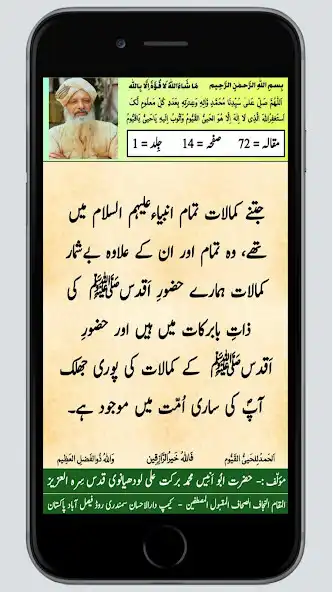 بِسمِ اللّٰهِ الرَّحمٰنِ الرَّحِيمِ    مَا شَاءَ اللّٰهُ لَا قُوَّةَ اِلَّا بِاللّٰهِ
اَللّٰهُمَّ صَلِّ عَلىٰ سَيِّدِنَا مُحَمَّدٍ وَّاٰلِهٖ وَعِترَتِهٖ بِعَدَدِ كُلِّ مَعلُومٍ لَّكَ
اَستَغفِرُ اللّٰهَ الَّذِى لَا اِلٰهَ اِلَّا هُوَ الحَىُّ القَيُّومُ وَاَتُوبُ اِلَيهِ يَا حَىُّ يَا قَيُّومُ
مقالہ = 72    صفحہ = 14    جِلد = 1
جتنے کمالات تمام انبیاء علیہم السلام میں
تھے، وہ تمام اور ان کے علاوہ بے شمار
کمالات ہمارے حضورِ اَقدس ﷺ کی
ذاتِ بابرکات میں ہیں اور حضورِ
اَقدس ﷺ کے کمالات کی پوری جھلک
آپؐ کی ساری اُمّت میں موجود ہے۔
اَلحَمدُ لِلحَىِّ القَيُّوم    فَاللّٰهُ خَيرُ الرَّازِقِين    وَاللّٰهُ ذُو الفَضلِ العَظِيم
مؤلّف :- حضرت ابُو اَنیس محمد برکت علی لودھیانوی قدس سِرہ العزیز
المقام النجاف الصحاف المقبول المصطفین - کیمپ دارالاحسان سمندری روڈ فیصل آباد پاکستان